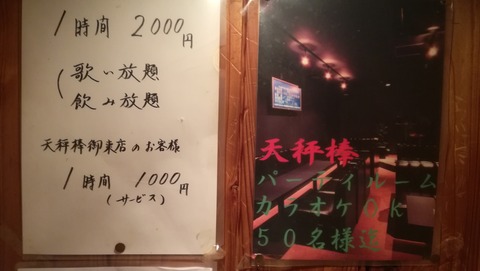 1時間 2000円
(歌い放題
飲み放題
天秤棒御来店のお客様
1時間 1000円
(サービス)
天秤棒
パーティルーム
カラオケOK!
50名様迄